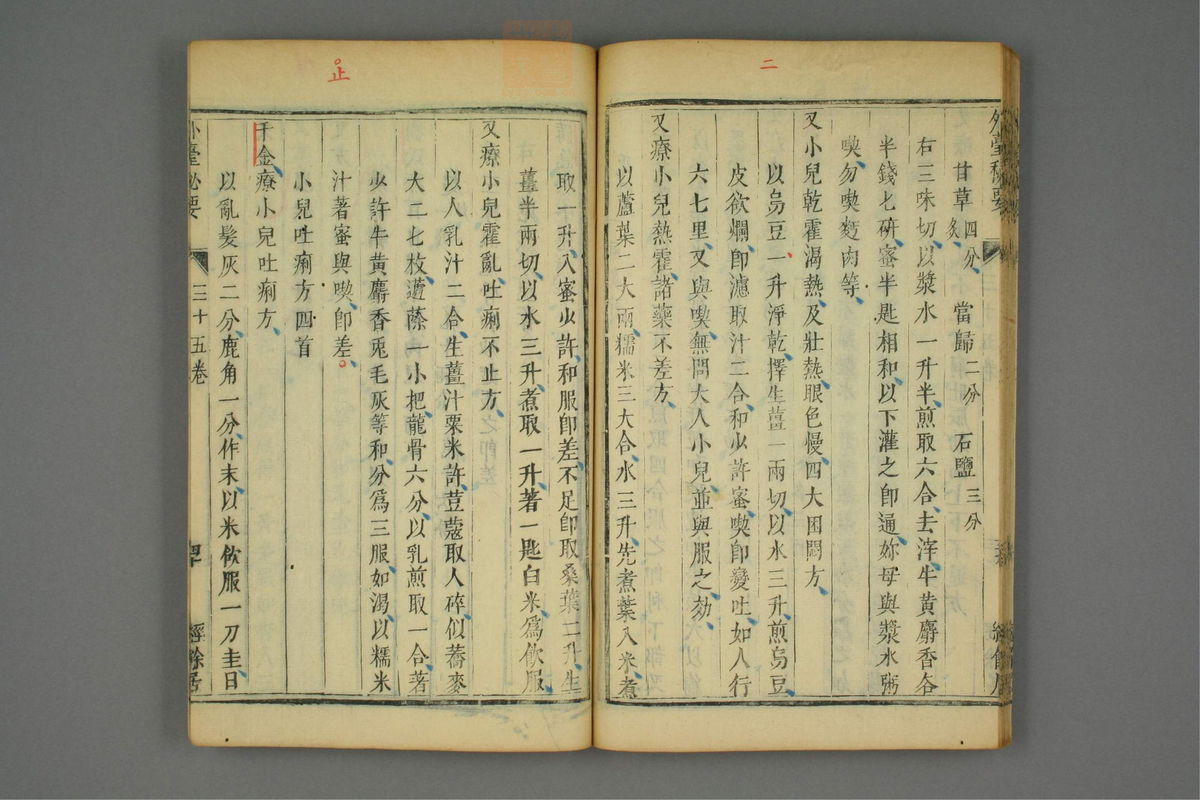 二
外臺秘要
甘草四分炙 當歸二分 石鹽三分
右三味切以漿水一升半煎取六合去滓牛黃麝香各
半錢匕研蜜半匙相和以下灌之即通妳母與漿水粥
喫勿喫麪肉等
又小兒乾霍渴熱及壯熱眼色慢四大困悶方
以烏豆一升淨乾擇生薑一兩切以水三升煎烏豆
皮欲爛即濾取汁二合和少許蜜喫即變吐如人行
六七里又與喫無問大人小兒並與服之効
又療小兒熱霍諸藥不差方
以蘆葉二大兩糯米三大合水三升先煮葉入米煮
止
取一升入蜜少許和服即差不足即取桑葉二升生
薑半兩切以水三升煮取一升著一匙白米爲飲服
又療小兒霍亂吐痢不止方
以人乳汁二合生薑汁粟米許荳蔻取人碎似蕎麥
大二七枚薳蒢一小把龍骨六分以乳煎取一合著
少許牛黃麝香兎毛灰等和分爲三服如渴以糯米
汁著蜜與喫即差
小兒吐痢方四首
千金療小兒吐痢方
以亂髮灰二分鹿角一分作末以米飲服一刀圭日
外臺秘要 三十五卷 經餘居